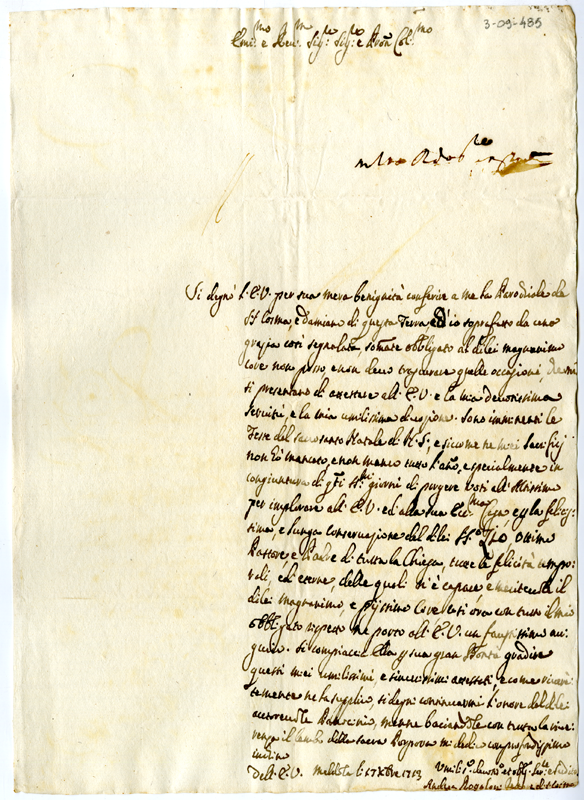 3-09-485
Em.mo e Rev.mo Sig.re Sig.re e Pron Col.mo
Si degnò l'E.V. per sua mera benignità conferire a me la Parochiale de
SS Cosma, e Damiano di questa Terra, ed io soprafatto da una
grazia così segnalata, sommte obbligato al di lei magnanimo
core non posso, e non devo trascurare quelle occasioni, che mi
si presentano di attestare all'E.V. e la mia devotissima
servitù, e la mia umilissima divozione. Sono imminenti le
Feste del sacrosanto Natale di N.S., e siccome ne miei Sacrificj
non ho mancato, e non manco tutto l'año, e specialmente in
congiuntura di qti SSmi giorni di porgere Voti all'Altissimo
per implorare all'E.V. ed alla sua Ecc.ma e p la felicis-
sima, e lunga conservazione del di lei SS. Zio Ottimo
Pastore, e Padre di tutta la Chiesa, tutte le felicità tempo-
rali, ed eterne, delle quali n'è capace e meritevole il
di lei magnanimo, e piissimo Core così ora con tutto il mio
obbligato rispetto ne porto all'E.V. un faustissimo au-
gurio. Si compiaccia Ella p sua gran Bontà gradire
questi miei umilissimi e sincerissimi attestati, e come riveren-
temente ne la supplico, si degni continuarmi l'onore del di lei
autorevole Patrocinio, mentre baciandole con tutta la rive-
renza il lembo della sacra Porpora mi dedico con profondissimo
inchino
Dell'E.V. li 17 Xbre 1763
Andrea